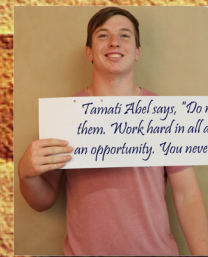 Tamati Abel says, "Do
them. Work hard in all
an opportunity. You never